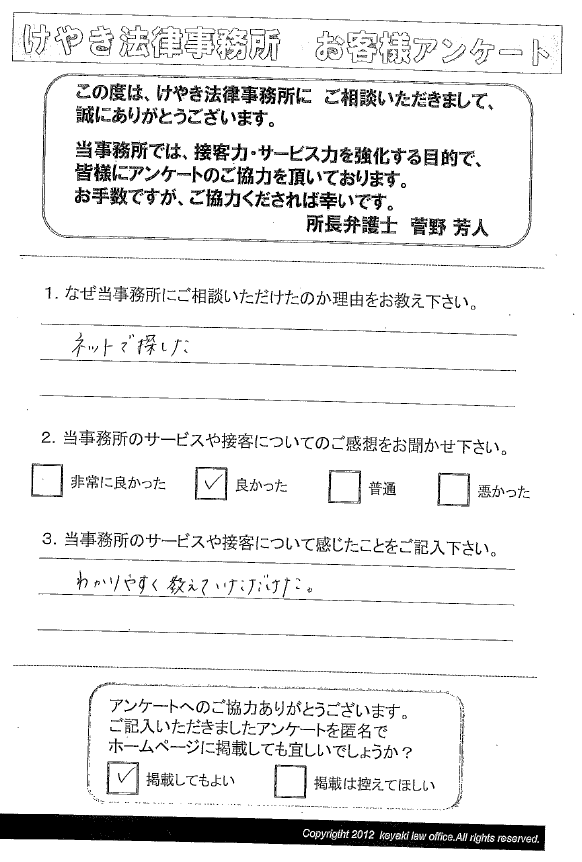 けやき法律事務所　お客様アンケート
この度は、けやき法律事務所に　ご相談いただきまして、
誠にありがとうございます。
当事務所では、接客力・サービス力を強化する目的で、
皆様にアンケートのご協力を頂いております。
お手数ですが、ご協力くだされば幸いです。
所長弁護士　菅野 芳人
1. なぜ当事務所にご相談いただけたのか理由をお教え下さい。
ネットで探した
2. 当事務所のサービスや接客についてのご感想をお聞かせ下さい。
非常に良かった　✓ 良かった　普通　悪かった
3. 当事務所のサービスや接客について感じたことをご記入下さい。
わかりやすく教えていただけた。
アンケートへのご協力ありがとうございます。
ご記入いただきましたアンケートを匿名で
ホームページに掲載しても宜しいでしょうか？
✓ 掲載してもよい　掲載は控えてほしい
Copyright 2012 keyaki law office.All rights reserved.